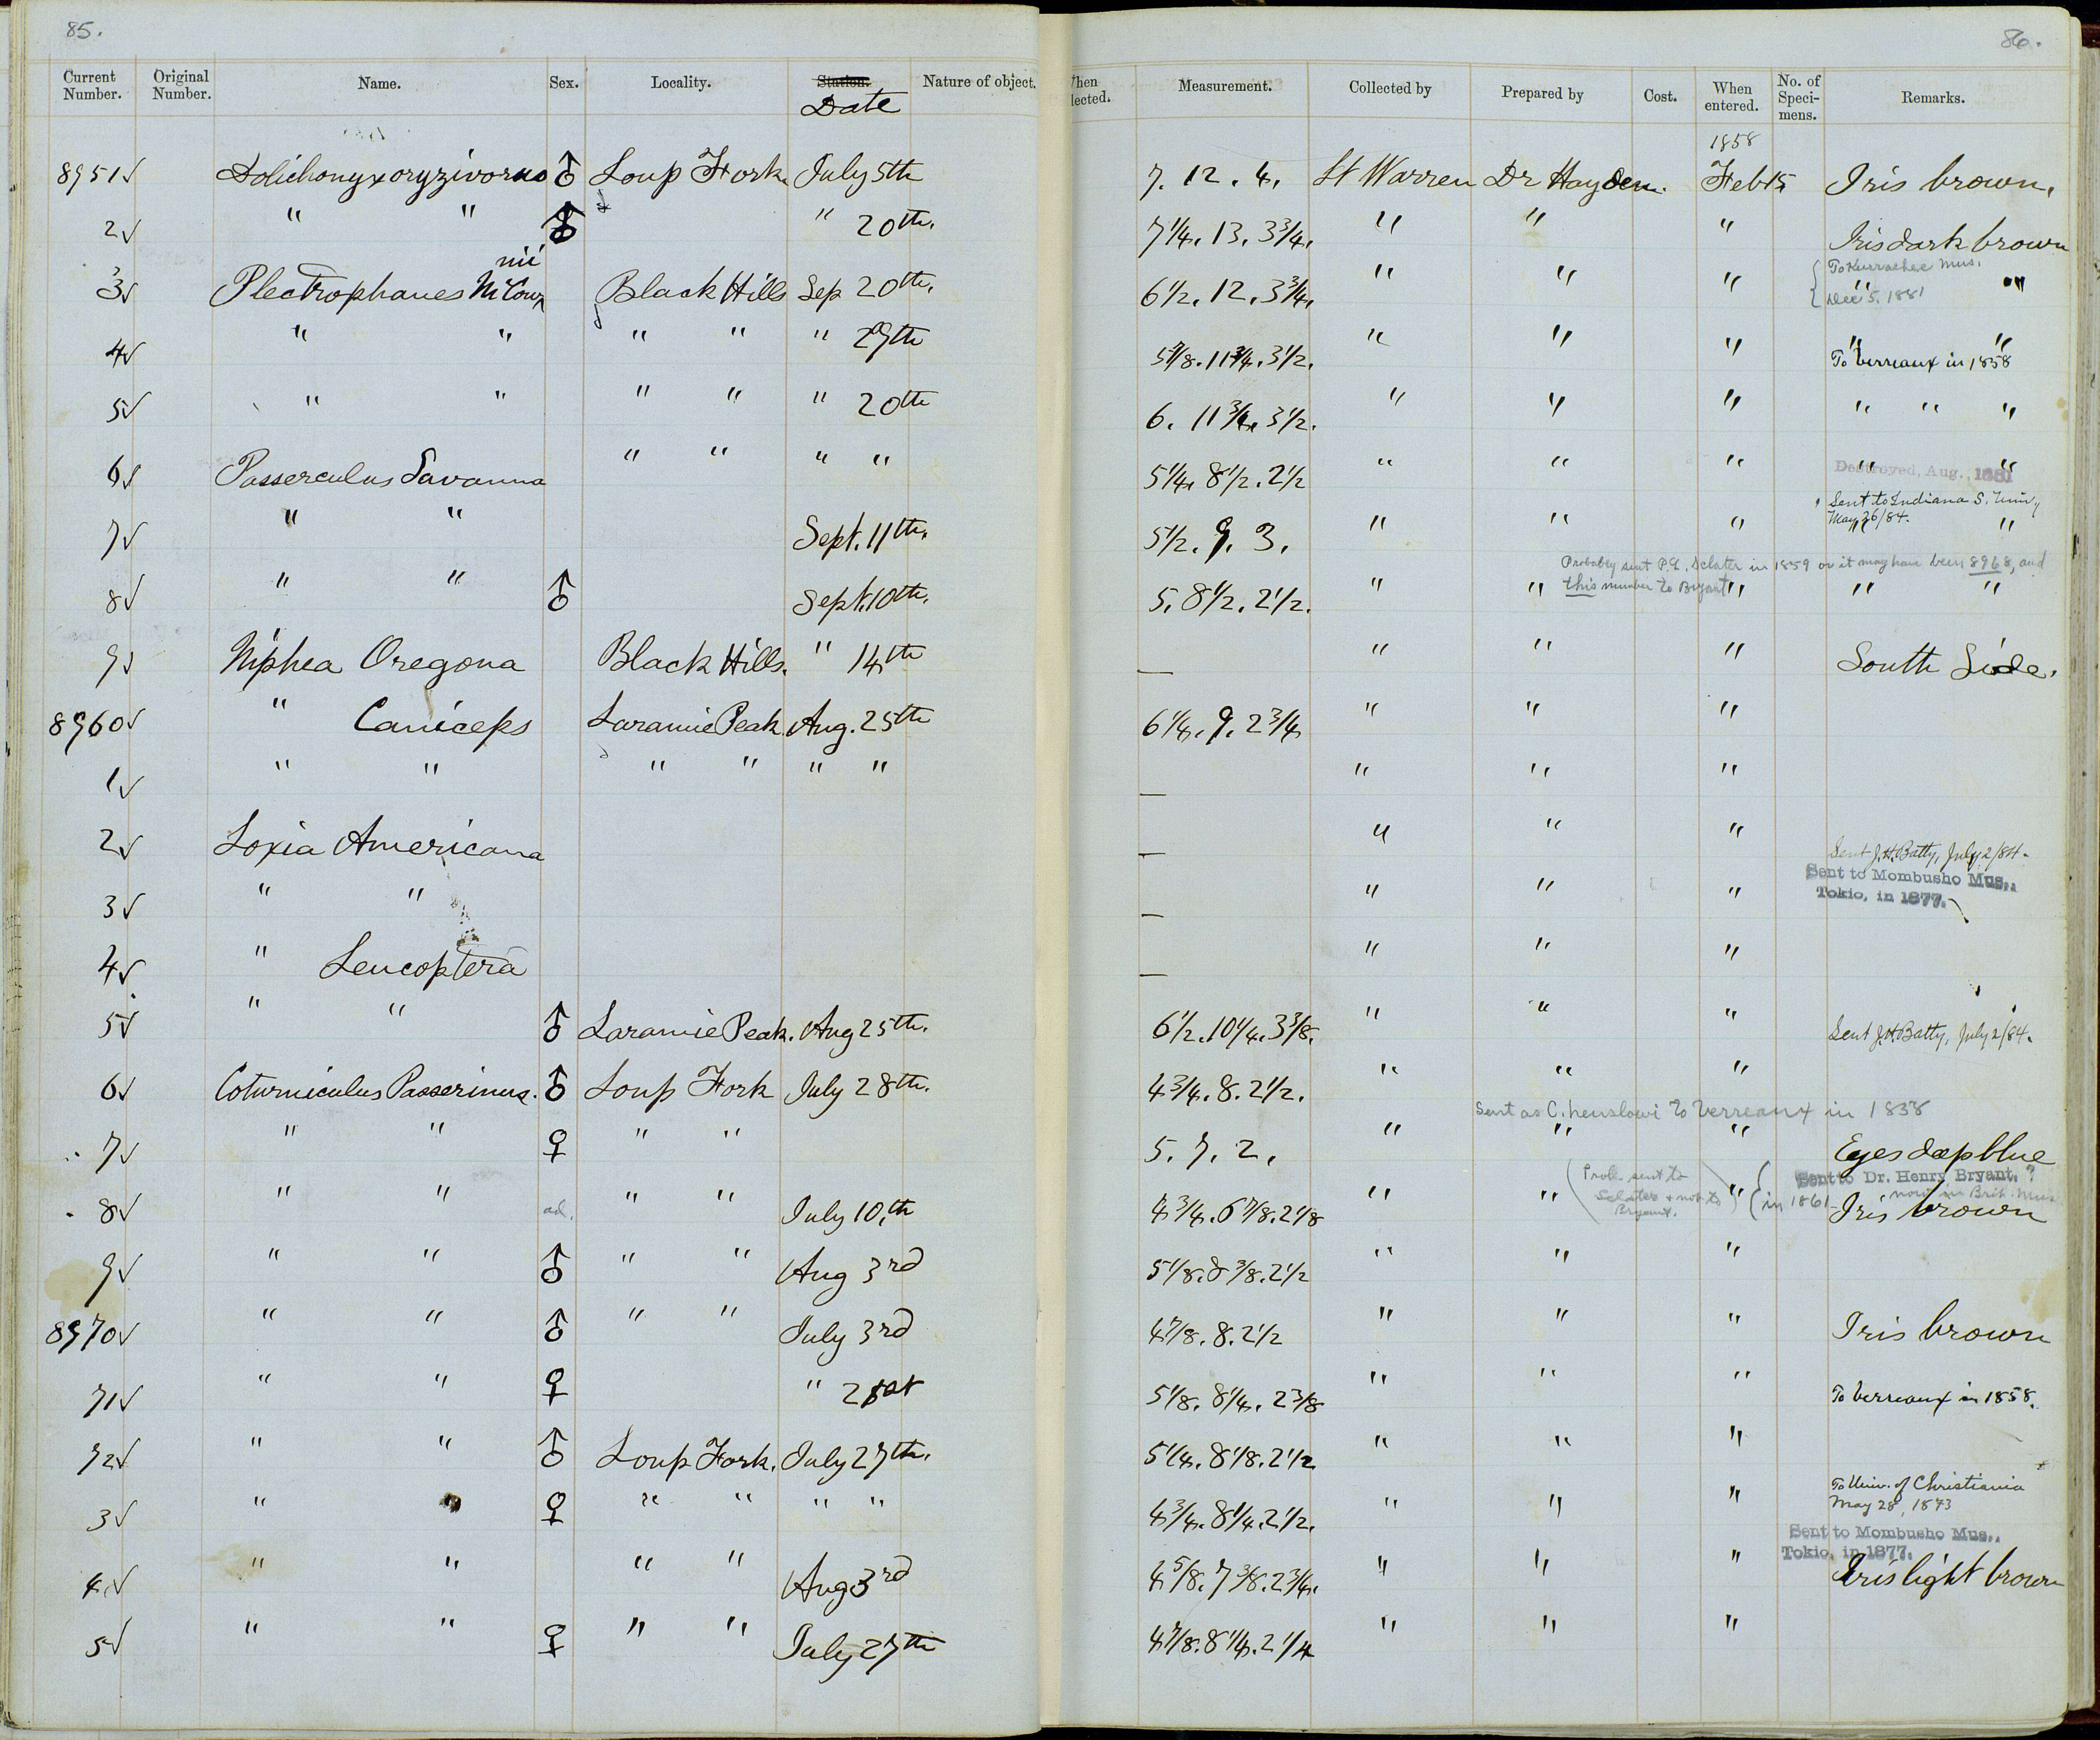 85.
86.
Current Number. Original Number. Name. Sex. Locality. Station. Date Nature of object. When lected. Measurement. Collected by Prepared by Cost. When entered. No. of Speci- mens. Remarks.
1858
8951√ Dolichonyx oryzivorus ♂ Loup Fork. July 5th 7. 12. 4. Lt Warren Dr Hayden. Feb 15 Iris brown.
2√ " " ♂ " 20th. 7 1/4. 13. 3 3/4. " " " Iris dark brown
3√ Plectrophanes McCownii Black Hills Sep 20th. 6 1/2. 12. 3 3/4. " " " " "
To Kurrachee Mus. Dec 5, 1881
4√ " " " " " 29th 5 7/8. 11 3/4. 3 1/2. " " " " "
To Verreaux in 1858
5√ " " " " " 20th 6. 11 3/4. 3 1/2. " " " " " "
6√ Passerculus Savanna " " " " 5 1/4. 8 1/2. 2 1/2 " " " " "
Destroyed, Aug., 1881
Sent to Indiana S. Univ, May 26/84.
7√ " " Sept. 11th. 5 1/2. 9. 3. " " " " "
Probably sent P.L. Sclater in 1859 or it may have been 8968, and this number to Bryant
8√ " " ♂ Sept. 10th. 5. 8 1/2. 2 1/2. " " " " "
9√ Niphea Oregona Black Hills. " 14th — " " " South Side.
8960√ " Caniceps Laramie Peak Aug. 25th 6 1/4. 9. 2 3/4 " " "
1√ " " " " " " — " " "
2√ Loxia Americana — " " " Sent J.H. Batty, July 2/84.
3√ " " — " " " Sent to Mombusho Mus., Tokio, in 1877.
4√ " Leucoptera — " " "
5√ " " ♂ Laramie Peak. Aug 25th. 6 1/2. 10 1/4. 3 3/8. " " " Sent J.H. Batty, July 2/84.
6√ Coturniculus Passerinus. ♂ Loup Fork July 28th. 4 3/4. 8. 2 1/2. " " "
Sent as C. henslowi to Verreaux in 1858
7√ " " ♀ " " 5. 7. 2. " " " Eyes deep blue
(Prob. sent to Sclater & not to Bryant.) Sent to Dr. Henry Bryant. ? in 1861 now in Brit. Mus
8√ " " ad. " " July 10.th 4 3/4. 6 7/8. 2 1/8 " " " Iris brown
9√ " " ♂ " " Aug 3rd 5 1/8. 8 3/8. 2 1/2 " " "
8970√ " " ♂ " " July 3rd 4 7/8. 8. 2 1/2 " " " Iris brown
71√ " " ♀ " 21st 5 1/8. 8 1/4. 2 3/8 " " " To Verreaux in 1858.
72√ " " ♂ Loup Fork. July 27th. 5 1/4. 8 1/8. 2 1/2 " " "
3√ " " ♀ " " " " 4 3/4. 8 1/4. 2 1/2. " " " To Univ. of Christiania May 28, 1873
Sent to Mombusho Mus., Tokio, in 1877.
4√ " " " " Aug 3rd 4 5/8. 7 3/8. 2 3/4. " " " Iris light brown
5√ " " ♀ " " July 27th 4 7/8. 8 1/4. 2 1/4 " " "